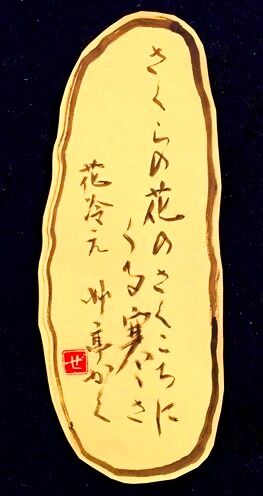 さくらの花のさくころに
くる寒さ
花冷え
艸亭かく
ぜ